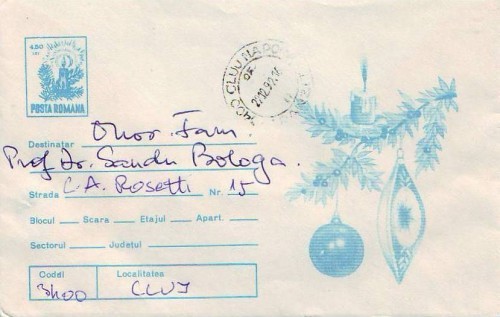 4,50
LEI
POSTA ROMANA
3400 CLUJ NAPOCA
27.12.92
Destinatar Onor. Fam.
Prof. Dr. Sandu Bologa.
Strada C.A. Rosetti Nr. 15
Blocul Scara Etajul Apart.
Sectorul Judetul
Codul Localitatea
3400 CLUJ